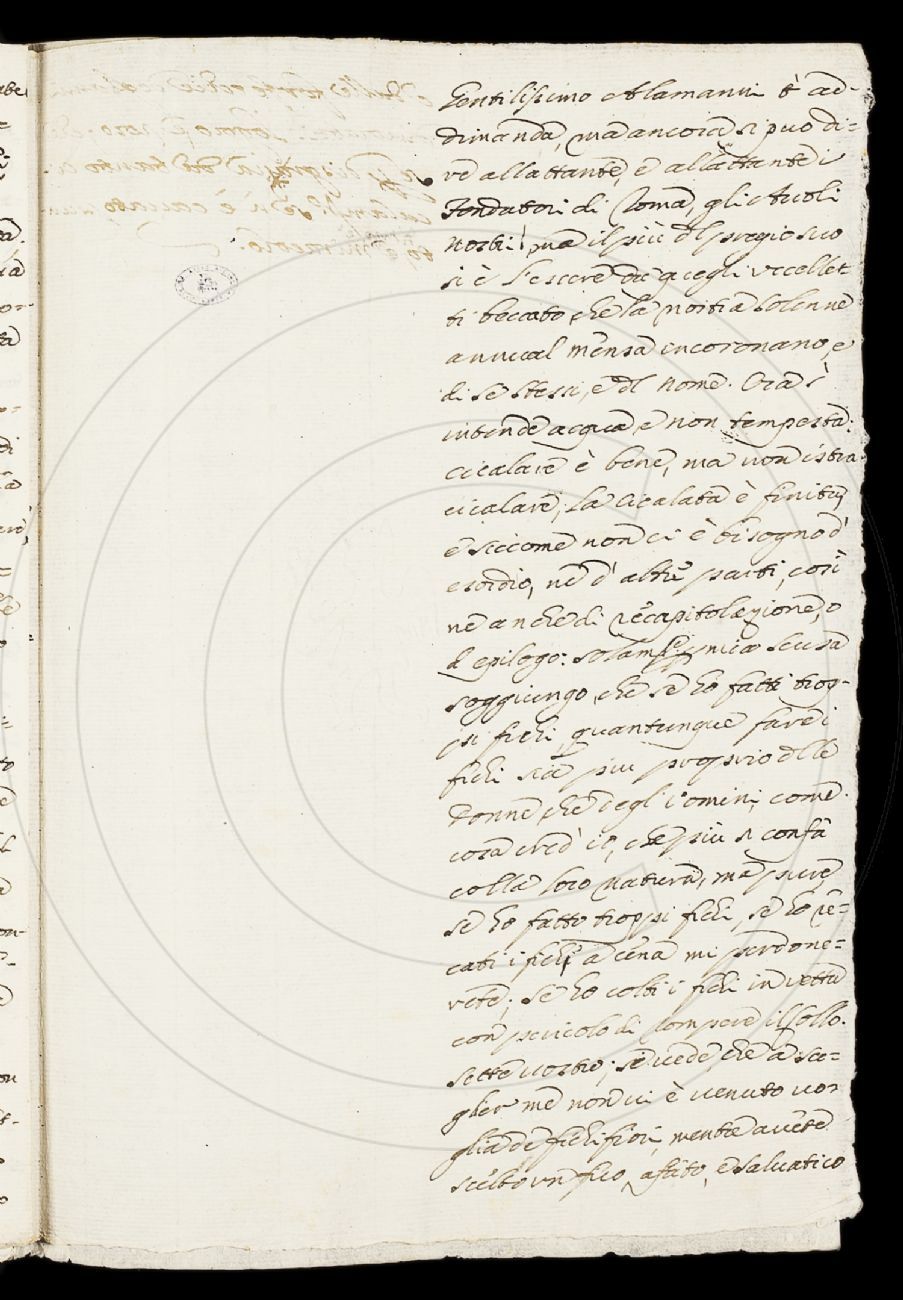 Gentilissimo Alamanni è ad-
dimanda, ma ancora si può di=
re allattante, e allattante i
Fondatori di Roma, gli Avoli
nostri; ma il più del pregio suo
si è l'essere da quegli uccellet
ti beccato, che la nostra solenne
annual mensa incoronano, e
di se stessi, e del nome. Ora s'
intende acqua, e non tempesta:
cicalare è bene, ma non istra
cicalare; la Cicalata è finita,
e siccome non ci è bisogno d'
esordio, ne d'altre parti, così
ne anche di recapitolazione, o
d'epilogo: solam.te p mia scusa
soggiungo, che se ho fatti trop-
pi fichi, quantunque fare i
fichi sia più proprio delle
Donne, che degl'iomini, come
cosa cred'io, che più si confà
colla loro natura, ma pure
se ho fatto troppi fichi, se ho re=
cati i fichi a cena mi perdone=
rete; se ho colti i fichi in vetta
con pericolo di rompere il collo.
sette vostro; se vede, che a sce=
glier me non vi è venuto vo
glia de fichi fiori, mentre avete
scelto un fico, afato, e salvatico